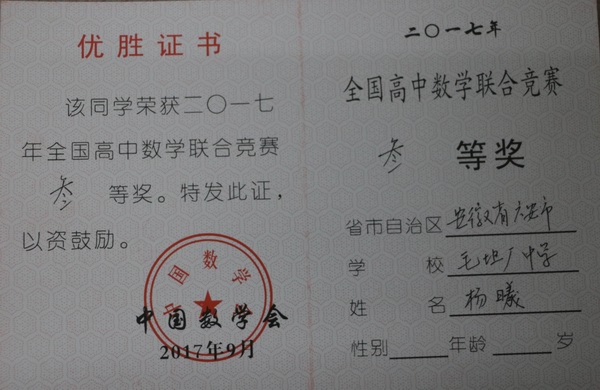 优胜证书
该同学荣获二〇一七
年全国高中数学联合竞赛
叁 等奖。特发此证，
以资鼓励。
中国数学
中国数学会
2017年9月
二〇一七年
全国高中数学联合竞赛
叁 等奖
省市自治区 安徽省六安市
学 校 毛坦厂中学
姓 名 杨曦
性别 年龄 岁